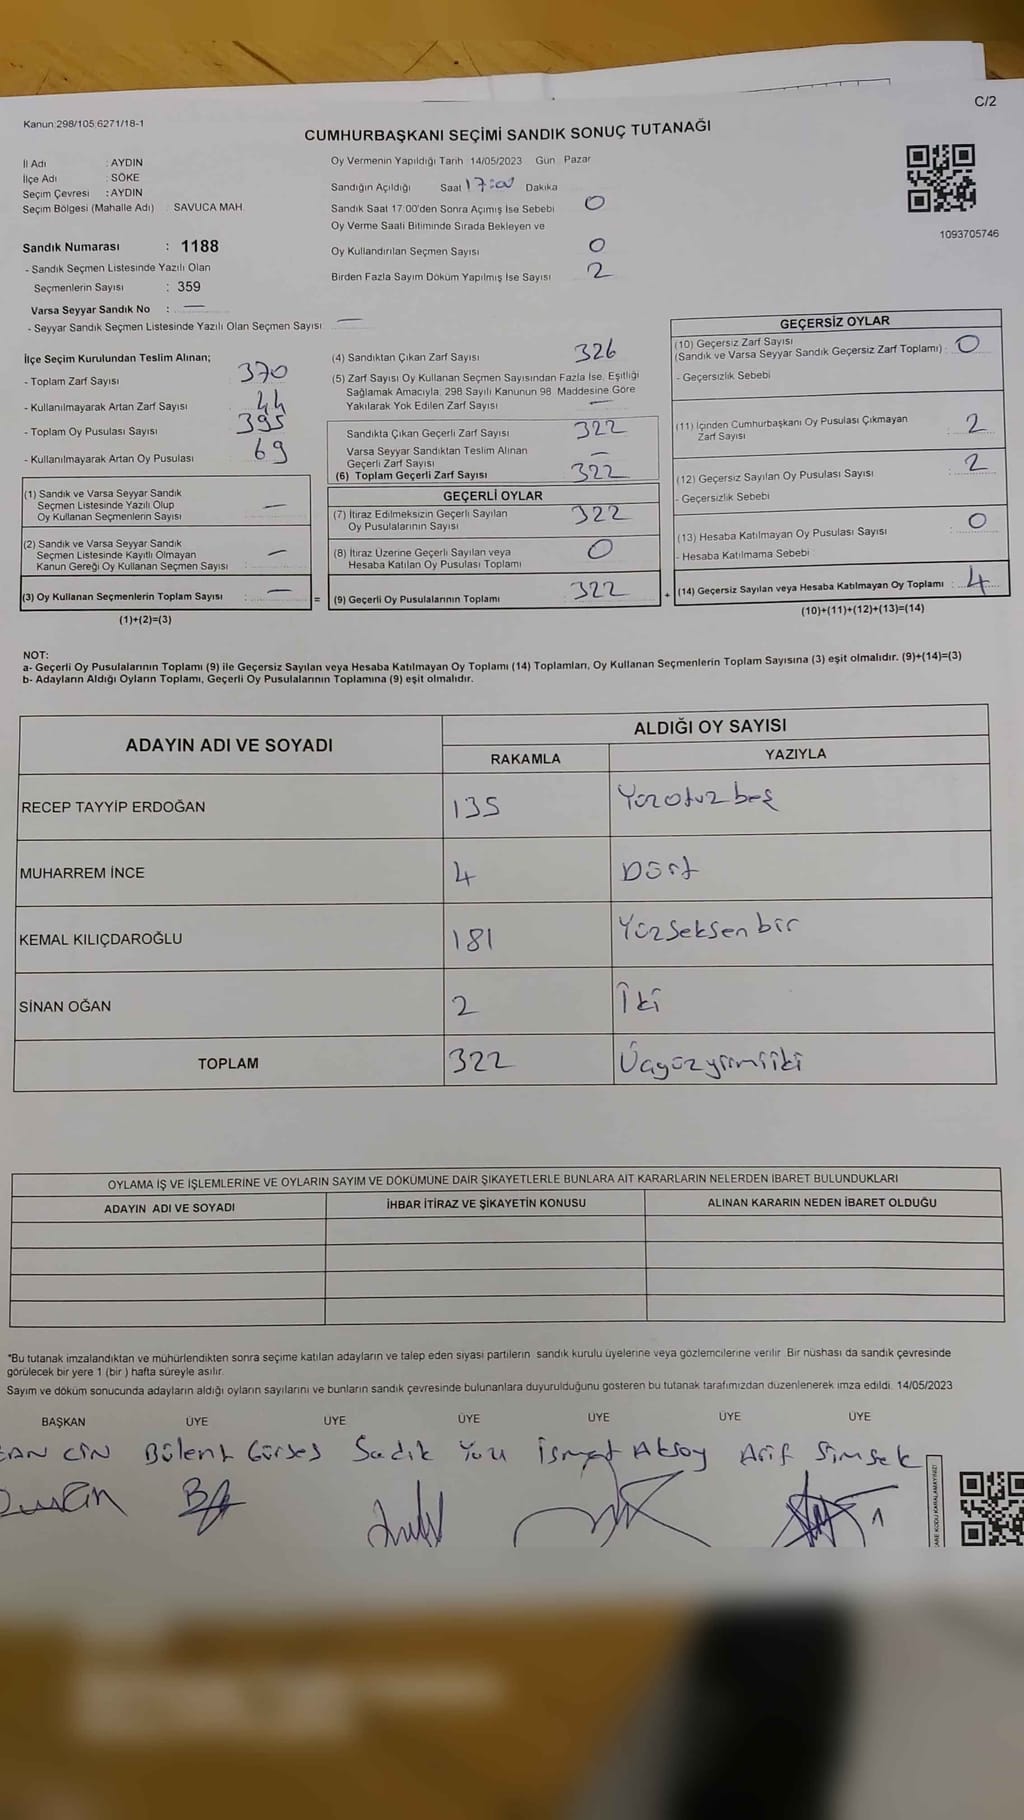 C/2
Kanun:298/105;6271/18-1
CUMHURBAŞKANI SEÇİMİ SANDIK SONUÇ TUTANAĞI
İl Adı : AYDIN
İlçe Adı : SÖKE
Seçim Çevresi : AYDIN
Seçim Bölgesi (Mahalle Adı) : SAVUCA MAH.
Sandık Numarası : 1188
- Sandık Seçmen Listesinde Yazılı Olan
Seçmenlerin Sayısı : 359
Varsa Seyyar Sandık No : —
- Seyyar Sandık Seçmen Listesinde Yazılı Olan Seçmen Sayısı —
Oy Vermenin Yapıldığı Tarih 14/05/2023 Gün Pazar
Sandığın Açıldığı Saat 17:00 Dakika
Sandık Saat 17:00'den Sonra Açımış İse Sebebi 0
Oy Verme Saati Bitiminde Sırada Bekleyen ve
Oy Kullandırılan Seçmen Sayısı 0
Birden Fazla Sayım Döküm Yapılmış İse Sayısı 2
1093705746
İlçe Seçim Kurulundan Teslim Alınan;
- Toplam Zarf Sayısı 370
- Kullanılmayarak Artan Zarf Sayısı 44
- Toplam Oy Pusulası Sayısı 395
- Kullanılmayarak Artan Oy Pusulası 69
(1) Sandık ve Varsa Seyyar Sandık
Seçmen Listesinde Yazılı Olup
Oy Kullanan Seçmenlerin Sayısı —
(2) Sandık ve Varsa Seyyar Sandık
Seçmen Listesinde Kayıtlı Olmayan
Kanun Gereği Oy Kullanan Seçmen Sayısı —
(3) Oy Kullanan Seçmenlerin Toplam Sayısı : — =
(1)+(2)=(3)
(4) Sandıktan Çıkan Zarf Sayısı 326
(5) Zarf Sayısı Oy Kullanan Seçmen Sayısından Fazla İse, Eşitliği
Sağlamak Amacıyla, 298 Sayılı Kanunun 98. Maddesine Göre
Yakılarak Yok Edilen Zarf Sayısı —
Sandıkta Çıkan Geçerli Zarf Sayısı 322
Varsa Seyyar Sandıktan Teslim Alınan
Geçerli Zarf Sayısı —
(6) Toplam Geçerli Zarf Sayısı 322
GEÇERLİ OYLAR
(7) İtiraz Edilmeksizin Geçerli Sayılan
Oy Pusulalarının Sayısı 322
(8) İtiraz Üzerine Geçerli Sayılan veya
Hesaba Katılan Oy Pusulası Toplamı 0
(9) Geçerli Oy Pusulalarının Toplamı 322 +
GEÇERSİZ OYLAR
(10) Geçersiz Zarf Sayısı
(Sandık ve Varsa Seyyar Sandık Geçersiz Zarf Toplamı) : 0
- Geçersizlik Sebebi
(11) İçinden Cumhurbaşkanı Oy Pusulası Çıkmayan
Zarf Sayısı 2
(12) Geçersiz Sayılan Oy Pusulası Sayısı 2
- Geçersizlik Sebebi
(13) Hesaba Katılmayan Oy Pusulası Sayısı 0
- Hesaba Katılmama Sebebi
(14) Geçersiz Sayılan veya Hesaba Katılmayan Oy Toplamı : 4
(10)+(11)+(12)+(13)=(14)
NOT:
a- Geçerli Oy Pusulalarının Toplamı (9) ile Geçersiz Sayılan veya Hesaba Katılmayan Oy Toplamı (14) Toplamları, Oy Kullanan Seçmenlerin Toplam Sayısına (3) eşit olmalıdır. (9)+(14)=(3)
b- Adayların Aldığı Oyların Toplamı, Geçerli Oy Pusulalarının Toplamına (9) eşit olmalıdır.
ADAYIN ADI VE SOYADI
ALDIĞI OY SAYISI
RAKAMLA YAZIYLA
RECEP TAYYİP ERDOĞAN 135 Yüzotuz beş
MUHARREM İNCE 4 Dört
KEMAL KILIÇDAROĞLU 181 Yüzseksen bir
SİNAN OĞAN 2 İki
TOPLAM 322 Üçyüzyirmiiki
OYLAMA İŞ VE İŞLEMLERİNE VE OYLARIN SAYIM VE DÖKÜMÜNE DAİR ŞİKAYETLERLE BUNLARA AİT KARARLARIN NELERDEN İBARET BULUNDUKLARI
ADAYIN ADI VE SOYADI İHBAR İTİRAZ VE ŞİKAYETİN KONUSU ALINAN KARARIN NEDEN İBARET OLDUĞU
*Bu tutanak imzalandıktan ve mühürlendikten sonra seçime katılan adayların ve talep eden siyasi partilerin sandık kurulu üyelerine veya gözlemcilerine verilir. Bir nüshası da sandık çevresinde
görülecek bir yere 1 (bir ) hafta süreyle asılır.
Sayım ve döküm sonucunda adayların aldığı oyların sayılarını ve bunların sandık çevresinde bulunanlara duyurulduğunu gösteren bu tutanak tarafımızdan düzenlenerek imza edildi. 14/05/2023
BAŞKAN ÜYE ÜYE ÜYE ÜYE ÜYE ÜYE
CİN Bülent Gürses Sadık İsmet Aksoy Arif Şimşek